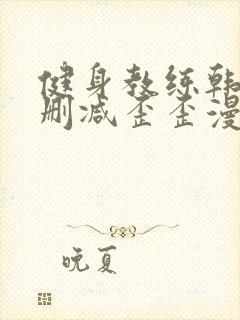 健身教练韩
删减歪歪漫
晚夏